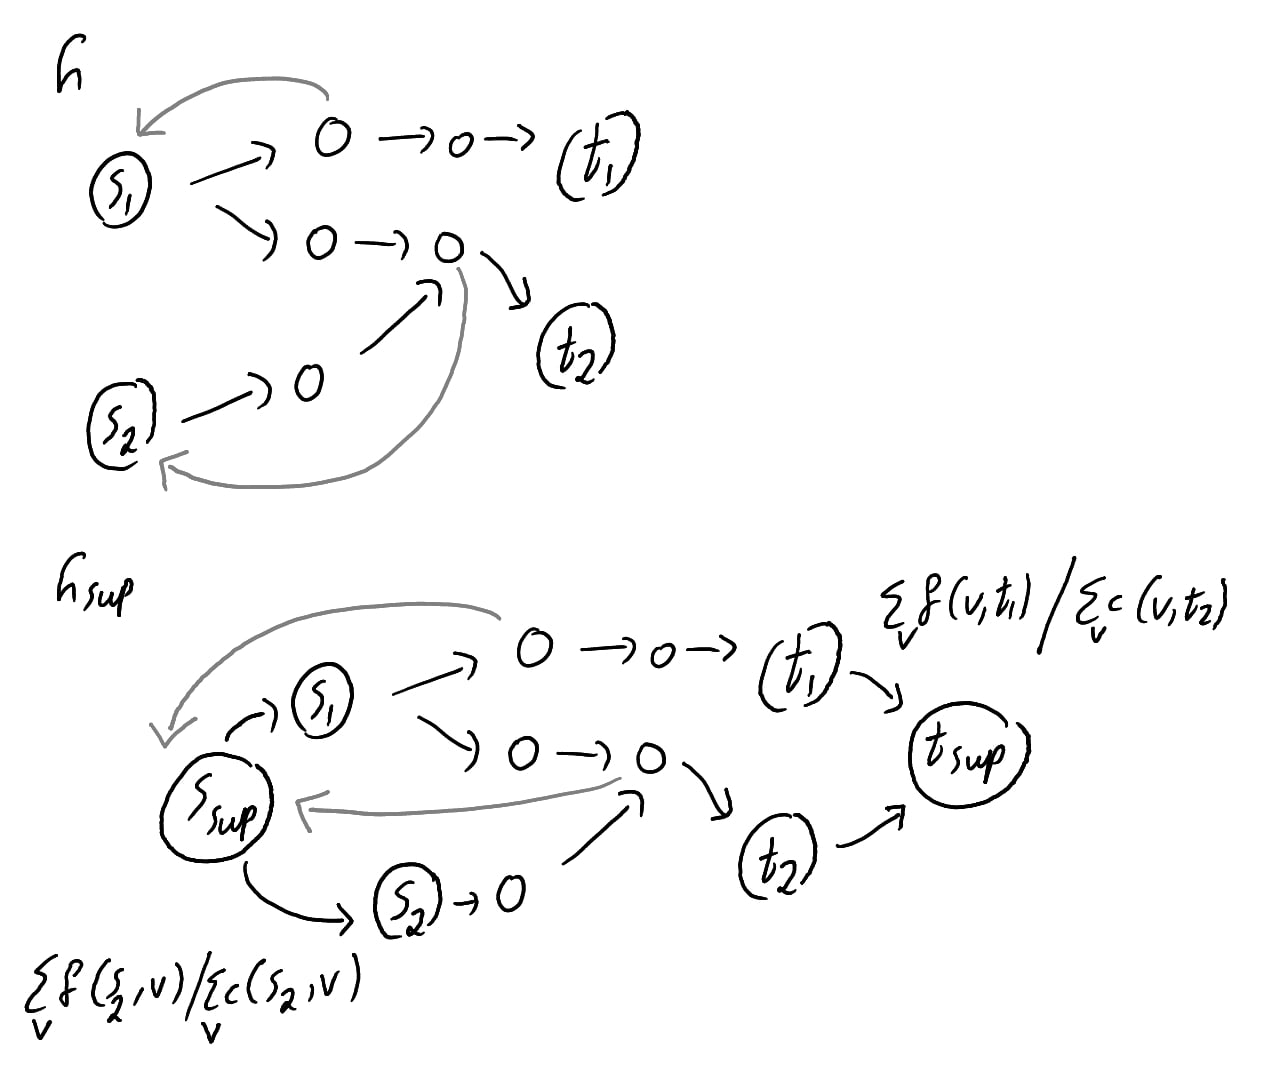 h
s₁
t₁
t₂
s₂
h sup
Σ_v f(v,t₁) / Σ_v c(v,t₂)
s₁
t₁
t sup
s sup
t₂
s₂
Σ_v f(s₂,v) / Σ_v c(s₂,v)